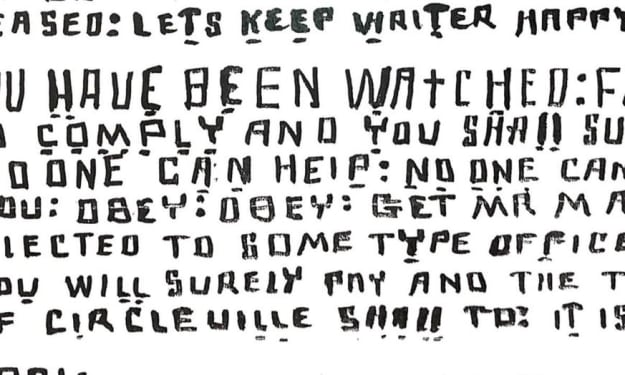 EASED: LETS KEEP WRITER HAPPY
U HAVE BEEN WATCHED: FA
O COMPLY AND YOU SHALL SU
O ONE CAN HELP: NO ONE CAN
OU: OBEY: OBEY: GET MR MA
LECTED TO SOME TYPE OFFICE
OU WILL SURELY PAY AND THE T
F CIRCLEVILLE SHALL TO: IT IS